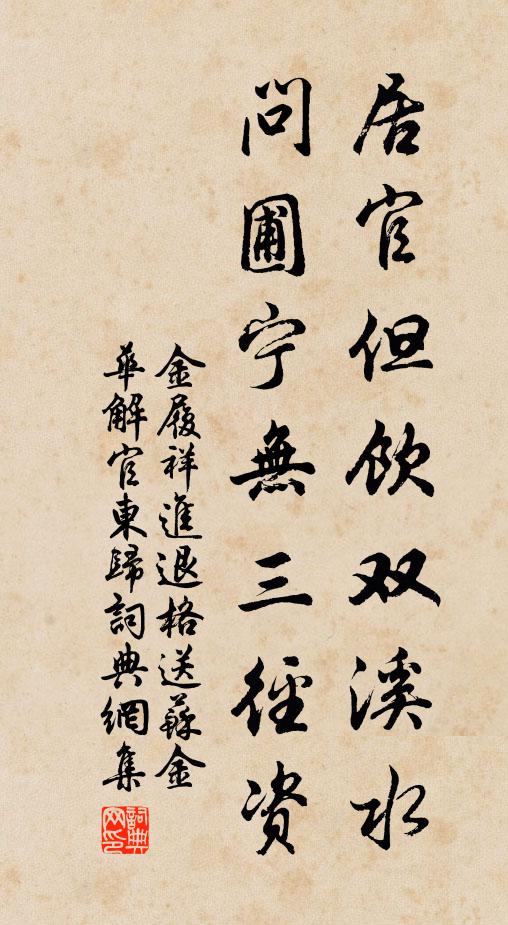 居官但飲双溪水
問圃宁無三徑资
金履祥進退格送蘇金
華解官東歸詞典網集
詞典网印